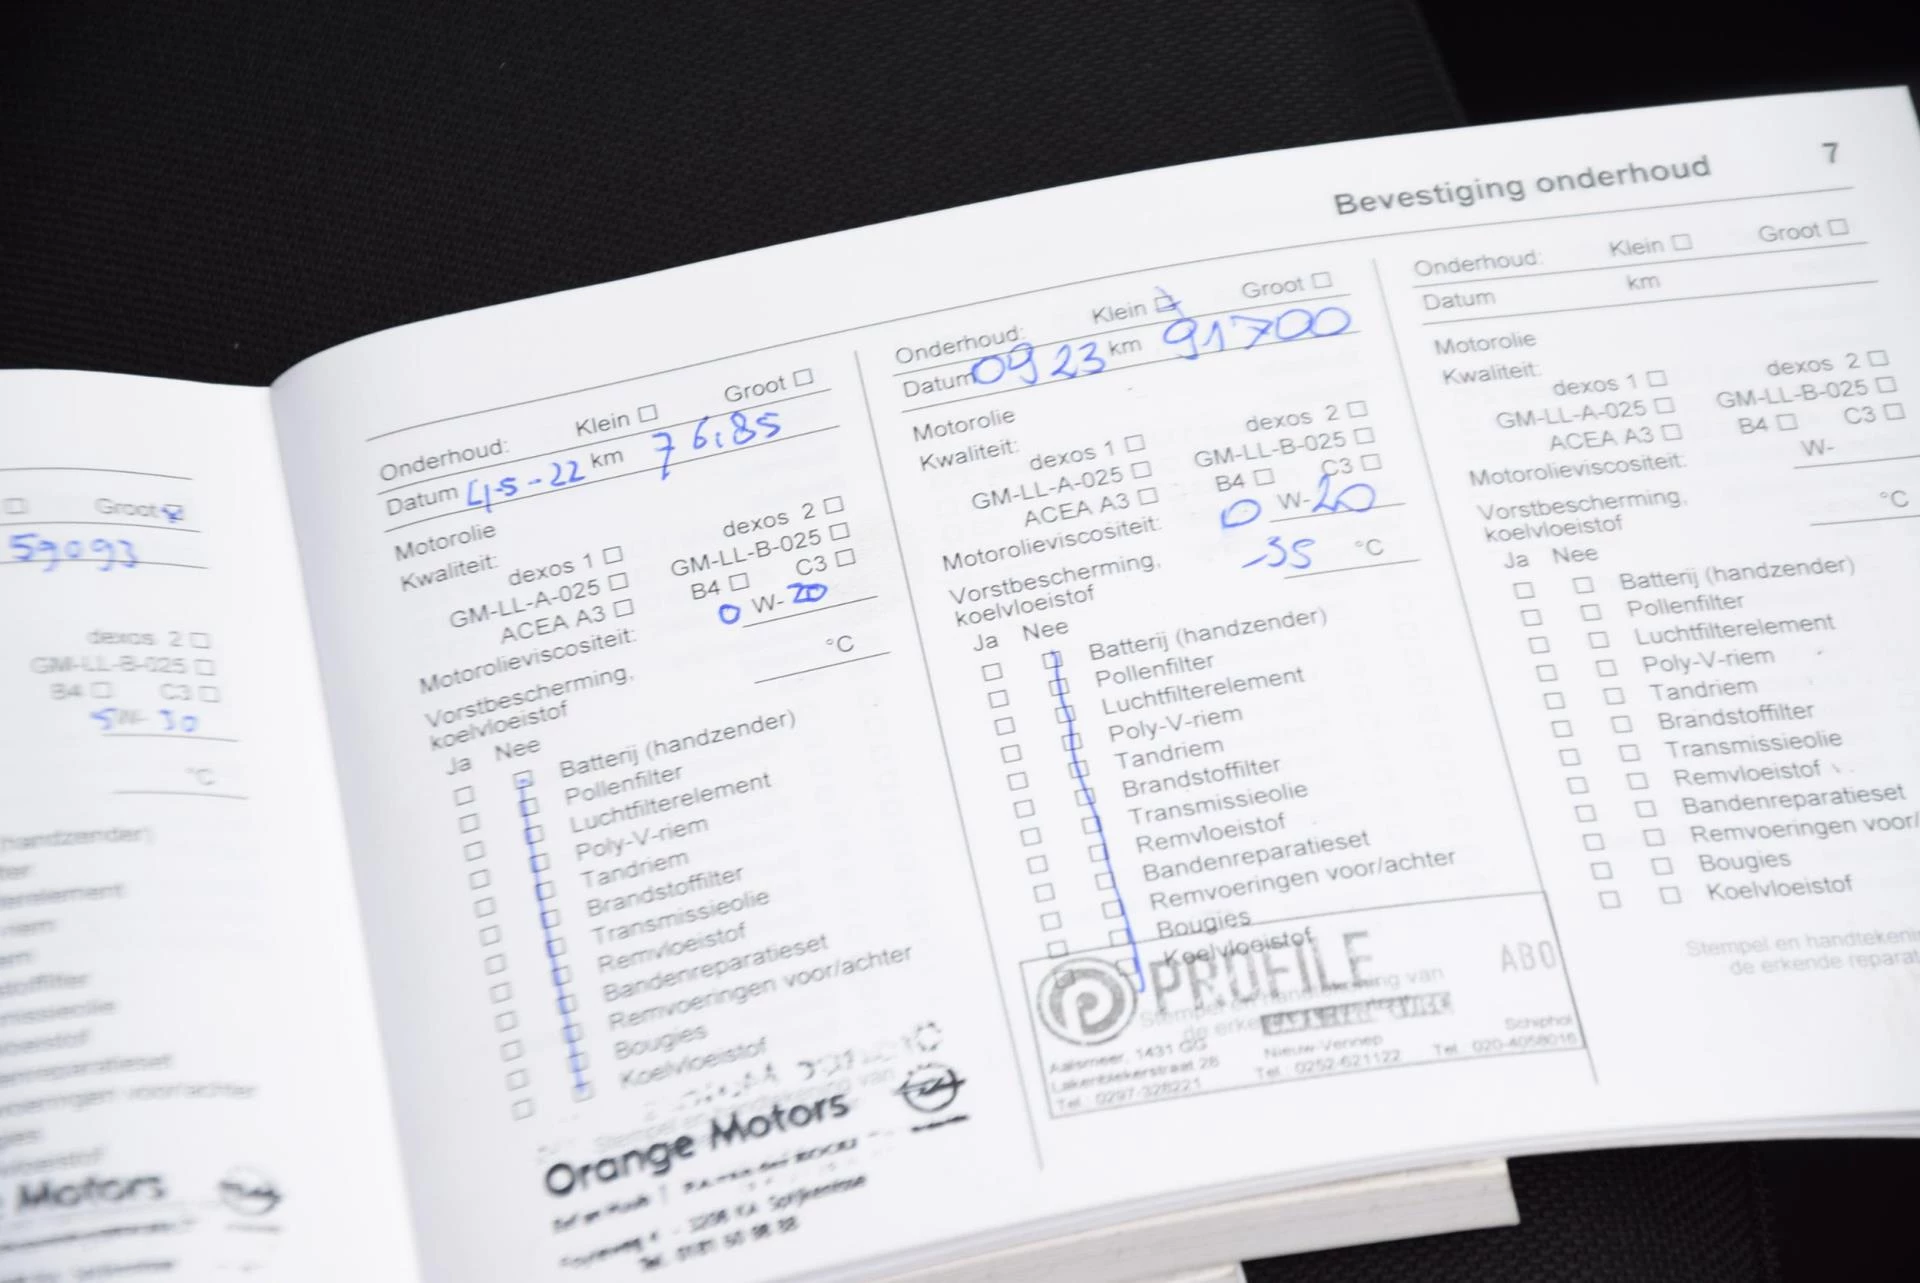 Groot
59093
dexos 2
GM-LL-B-025
B4 C3
5 W- 30
°C
handzender)
Motors
Bevestiging onderhoud 7
Onderhoud: Klein Groot
Datum 4-5-22 km 76.85
Motorolie
Kwaliteit: dexos 1 dexos 2
GM-LL-A-025 GM-LL-B-025
ACEA A3 B4 C3
Motorolieviscositeit: 0 W-20
Vorstbescherming,
koelvloeistof °C
Ja Nee
Batterij (handzender)
Pollenfilter
Luchtfilterelement
Poly-V-riem
Tandriem
Brandstoffilter
Transmissieolie
Remvloeistof
Bandenreparatieset
Remvoeringen voor/achter
Bougies
Koelvloeistof
Stempel en handtekening van
Orange Motors
3208 KA Spijkenisse
Tel. 0181
Onderhoud: Klein Groot
Datum 09 23 km 91700
Motorolie
Kwaliteit: dexos 1 dexos 2
GM-LL-A-025 GM-LL-B-025
ACEA A3 B4 C3
Motorolieviscositeit: 0 W-20
Vorstbescherming,
koelvloeistof -35 °C
Ja Nee
Batterij (handzender)
Pollenfilter
Luchtfilterelement
Poly-V-riem
Tandriem
Brandstoffilter
Transmissieolie
Remvloeistof
Bandenreparatieset
Remvoeringen voor/achter
Bougies
Koelvloeistof
Stempel en handtekening van
PROFILE ABO
Aalsmeer, 1431 GG Nieuw-Vennep Schiphol
Lakenblekerstraat 28 Tel. 0252-621122 Tel. 020-4058016
Tel. 0297-328221
Onderhoud: Klein Groot
Datum km
Motorolie
Kwaliteit: dexos 1 dexos 2
GM-LL-A-025 GM-LL-B-025
ACEA A3 B4 C3
Motorolieviscositeit: W-
Vorstbescherming,
koelvloeistof °C
Ja Nee
Batterij (handzender)
Pollenfilter
Luchtfilterelement
Poly-V-riem
Tandriem
Brandstoffilter
Transmissieolie
Remvloeistof
Bandenreparatieset
Remvoeringen voor/
Bougies
Koelvloeistof
Stempel en handtekeni
de erkende reparat